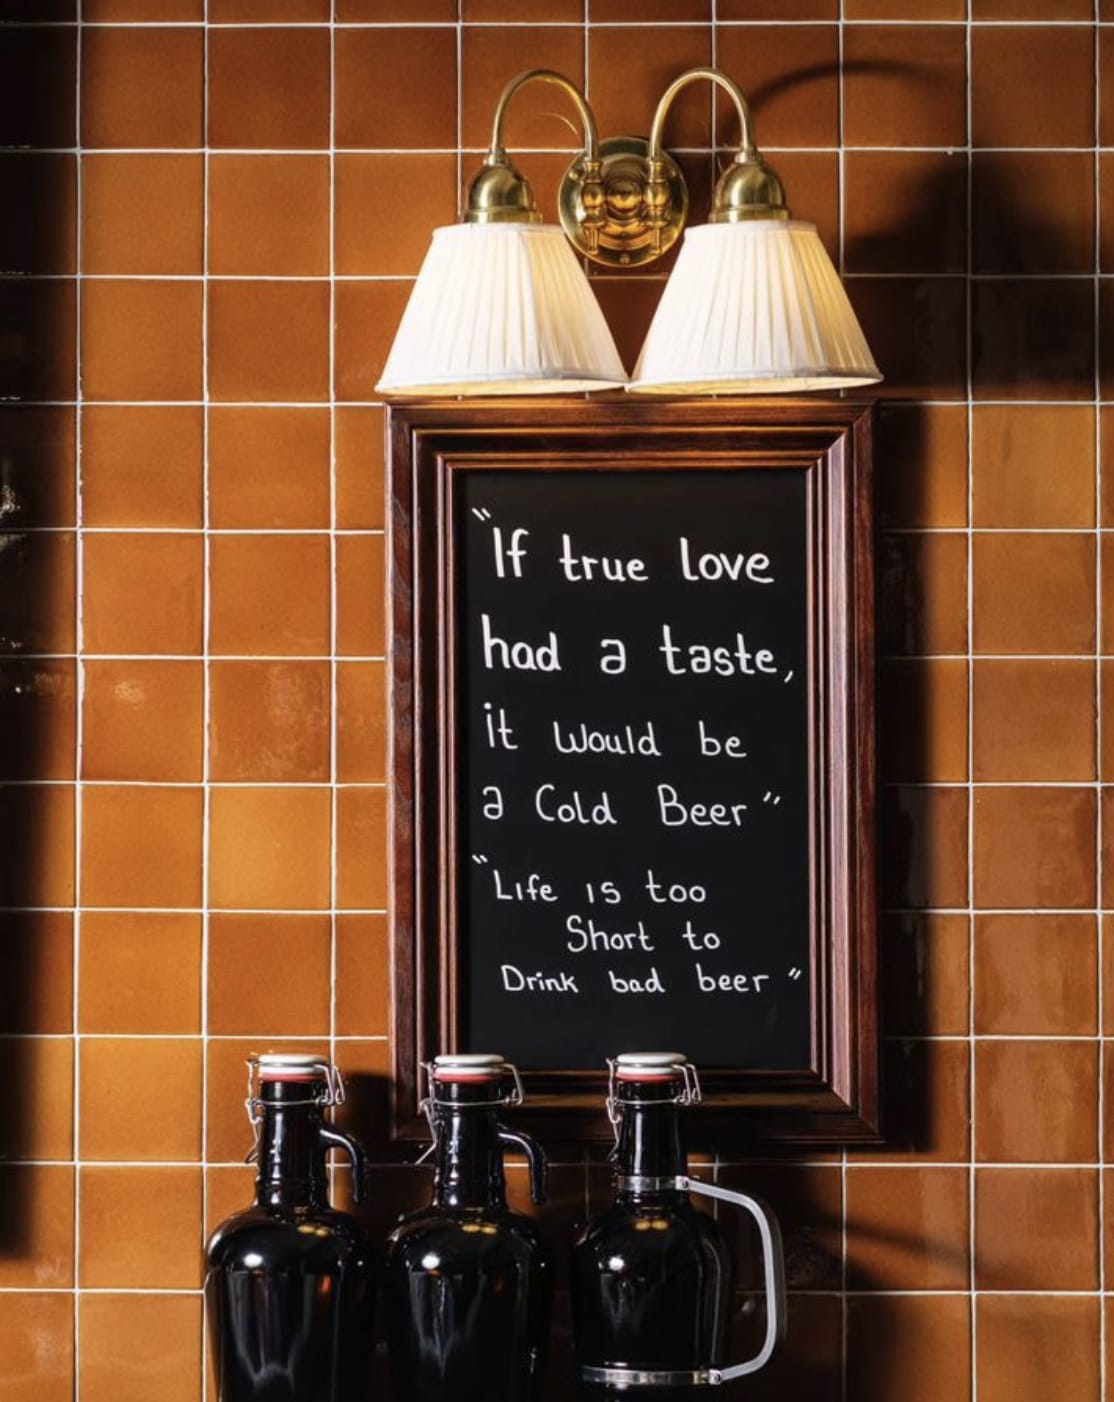 "If true love
had a taste,
it would be
a Cold Beer"
"Life is too
Short to
Drink bad beer"